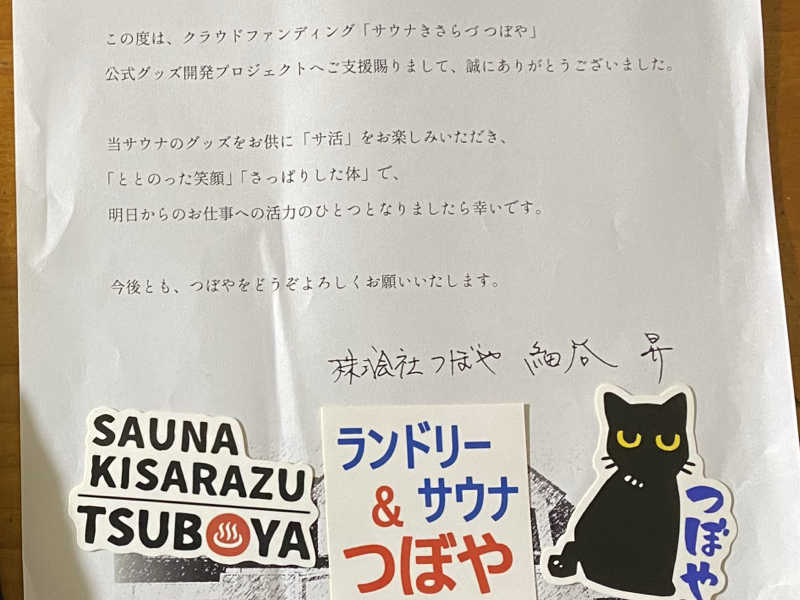 この度は、クラウドファンディング「サウナきさらづ つぼや」
公式グッズ開発プロジェクトへご支援賜りまして、誠にありがとうございました。
当サウナのグッズをお供に「サ活」をお楽しみいただき、
「ととのった笑顔」「さっぱりした体」で、
明日からのお仕事への活力のひとつとなりましたら幸いです。
今後とも、つぼやをどうぞよろしくお願いいたします。
株式会社つぼや 細谷 昇
SAUNA
KISARAZU
TSUB♨YA
ランドリー
&サウナ
つぼや
つぼや